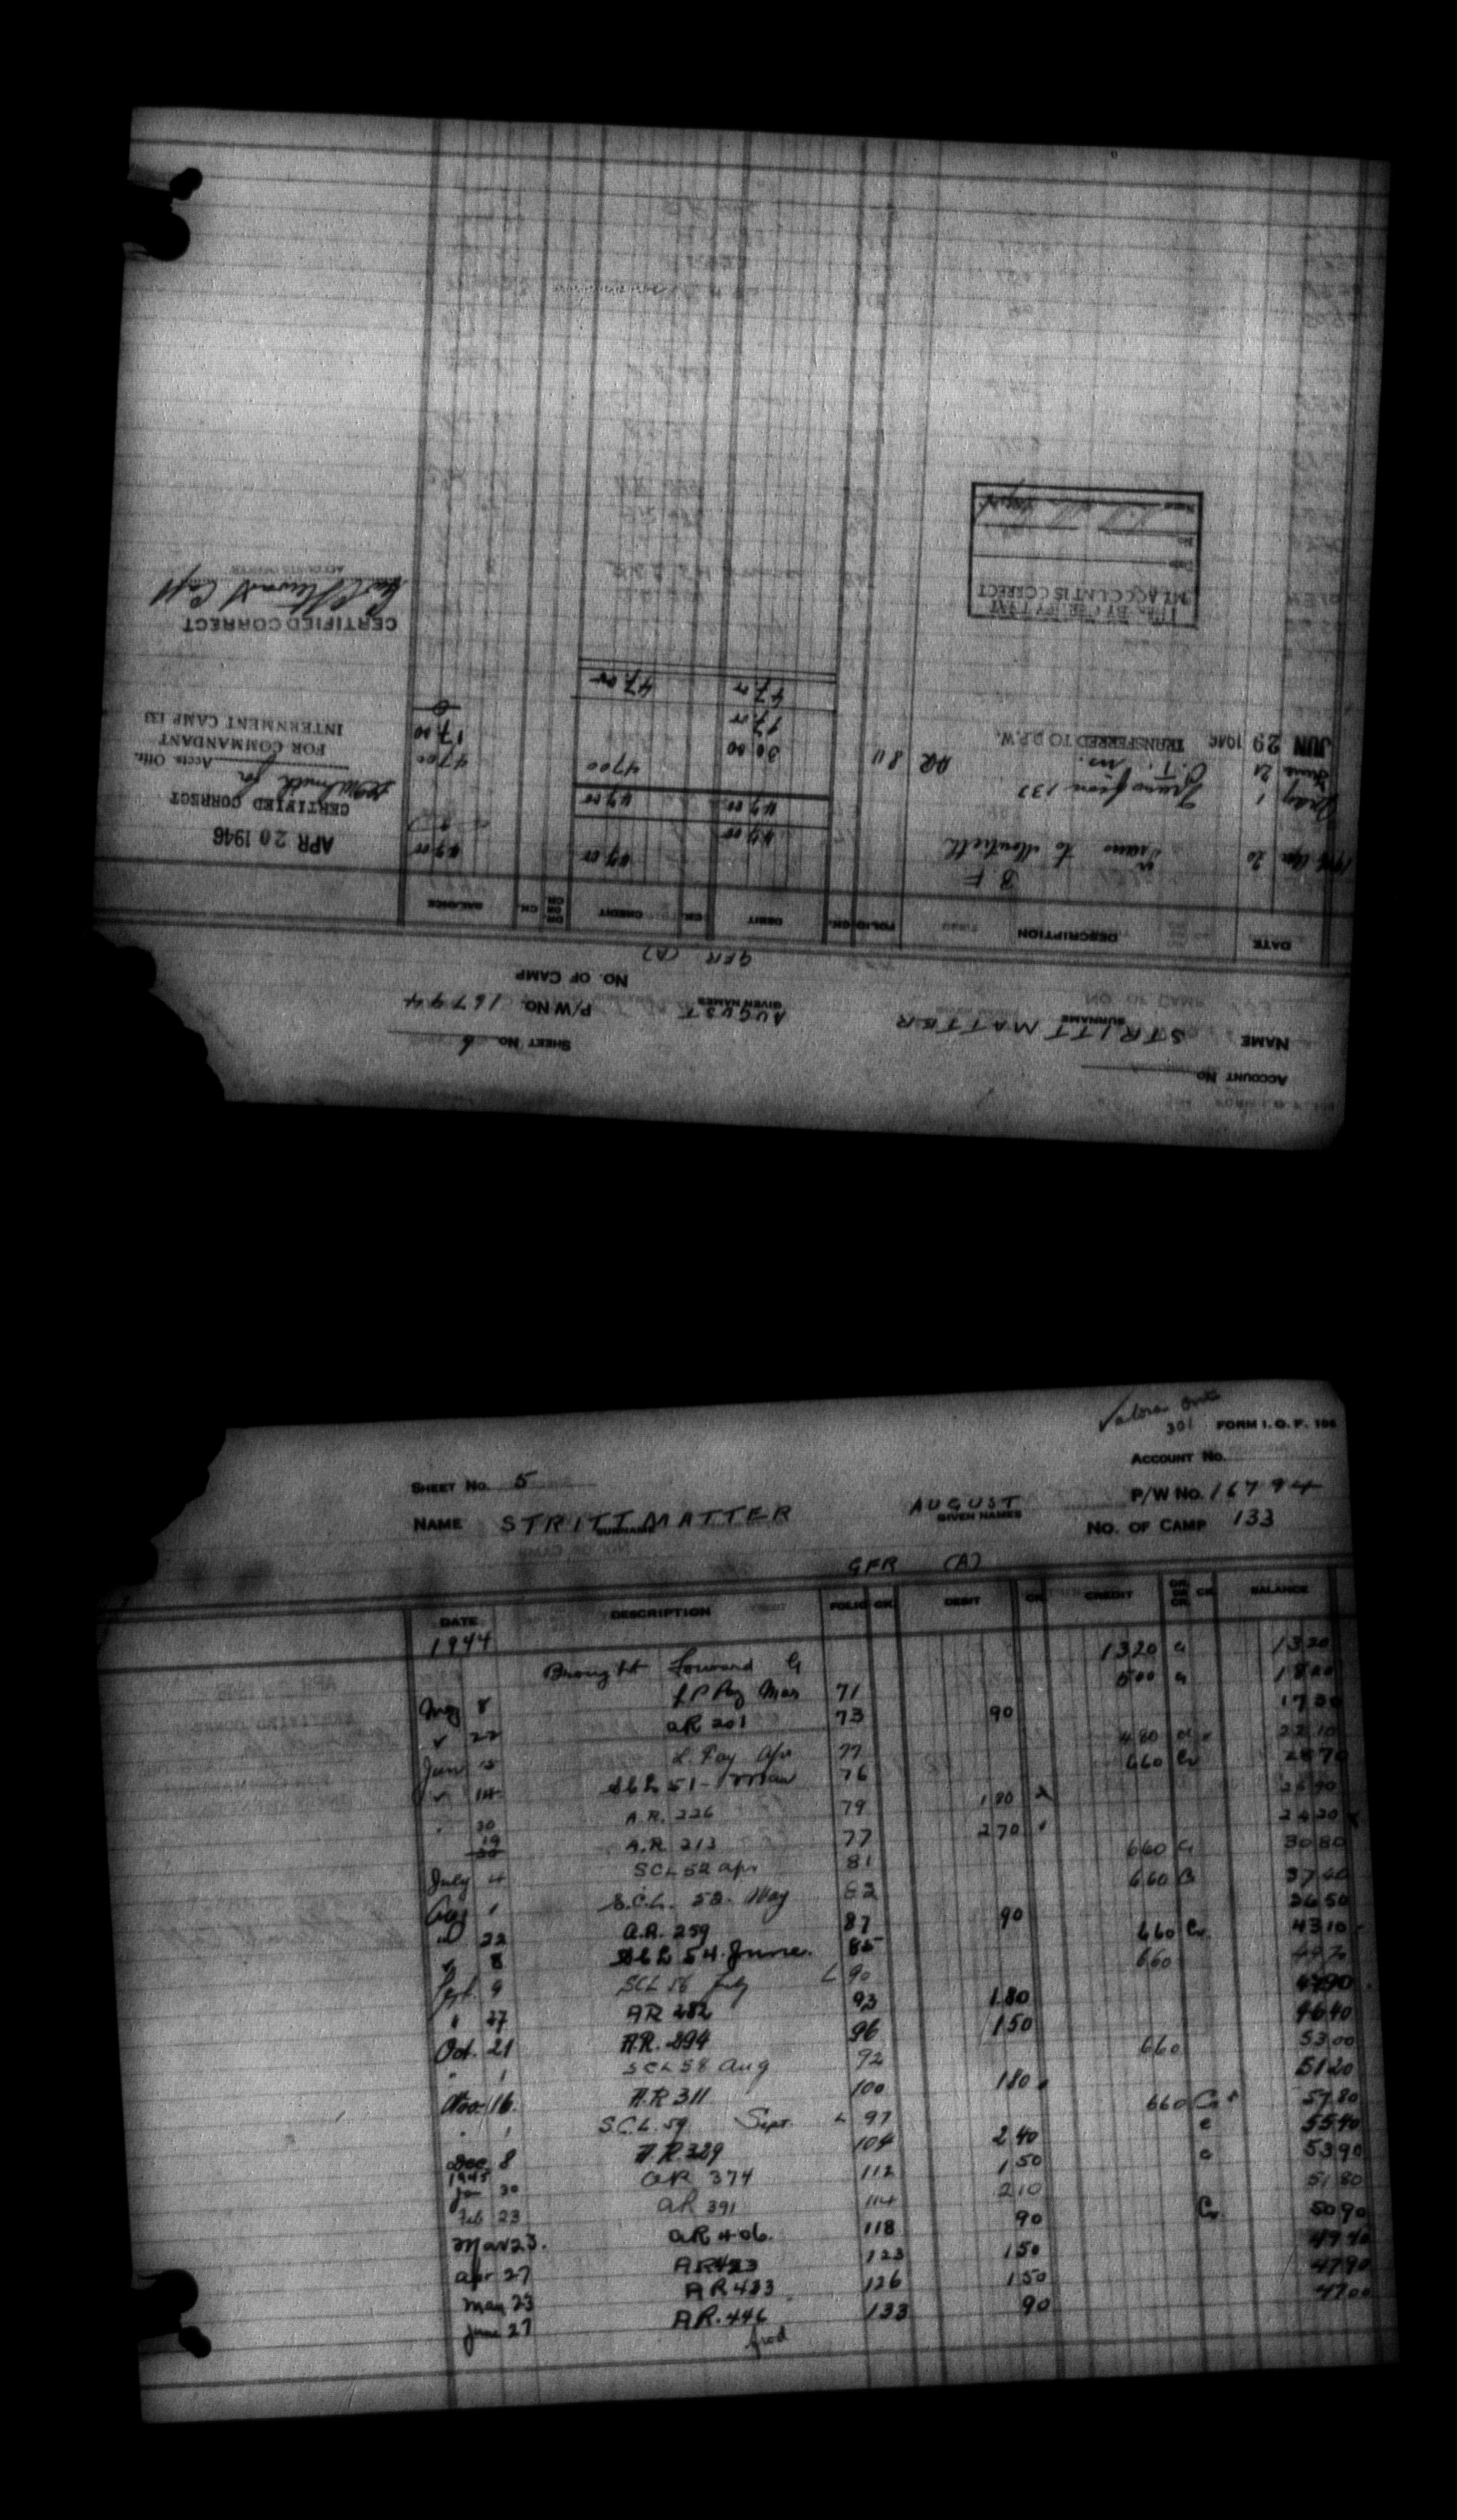 ACCOUNT No.
SHEET No. 6
NAME STRITTMATTER AUGUST P/W NO. 16794
SURNAME GIVEN NAMES
NO. OF CAMP
GFR (A)
DATE DESCRIPTION FOLIO CK. DEBIT CK. CREDIT DR. OR CR. CK. BALANCE
B F 47 00 47 00
1946 Apr 20 Trans to Monteith 47 00
APR 20 1946
47 00 47 00
CERTIFIED CORRECT
May 1 Trans from 133 47 00 47 00
Accts. Offr.
June 21 AR 811 30 00 17 00
FOR COMMANDANT
INTERNMENT CAMP 133
JUN 29 1946 TRANSFERRED TO D.P.W. 17 00 0
47 00 47 00
CERTIFIED CORRECT
ACCOUNTS OFFICER
MY ACCOUNT IS CORRECT
Valora
301 FORM I. O. P. 106
ACCOUNT No.
SHEET No. 5
P/W No. 16794
NAME STRITTMATTER AUGUST
SURNAME GIVEN NAMES
No. OF CAMP 133
GFR (A)
DATE DESCRIPTION FOLIO CK. DEBIT CK. CREDIT DR. OR CR. CK. BALANCE
1944
Brought Forward 13 20 13 20
May 8 Pay Mar 71 5 00 18 20
22 AR 201 73 90 17 30
Jun Pay Apr 77 4 80 22 10
14 SCL 51 76 6 60 Cr 28 70
20 A.R. 226 79 1 80 26 90
19 A.R. 213 77 2 70 24 20
July 4 SCL 52 apr 81 6 60 30 80
Aug 1 S.C.L. 52 May 82 6 60 37 40
22 A.R. 259 87 90 36 50
8 SCL 54 June 85 6 60 Cr. 43 10
Sept. 9 SCL 56 July 90 6 60 49 70
27 AR 282 93 1 80 47 90
Oct. 21 A.R. 294 96 1 50 46 40
SCL 58 Aug 92 6 60 53 00
Nov. 16. A.R 311 100 1 80 51 20
S.C.L. 59 Sept. 97 6 60 Cr 57 80
Dec 8 A.R. 329 104 2 40 55 40
1945
Jan 30 AR 374 112 1 50 53 90
Feb 23 AR 391 114 2 10 51 80
Mar 23. AR 406. 118 90 Cr 50 90
Apr 27 AR 423 123 1 50 49 40
May 23 AR 433 126 1 50 47 90
June 27 AR. 446 133 90 47 00
fwd